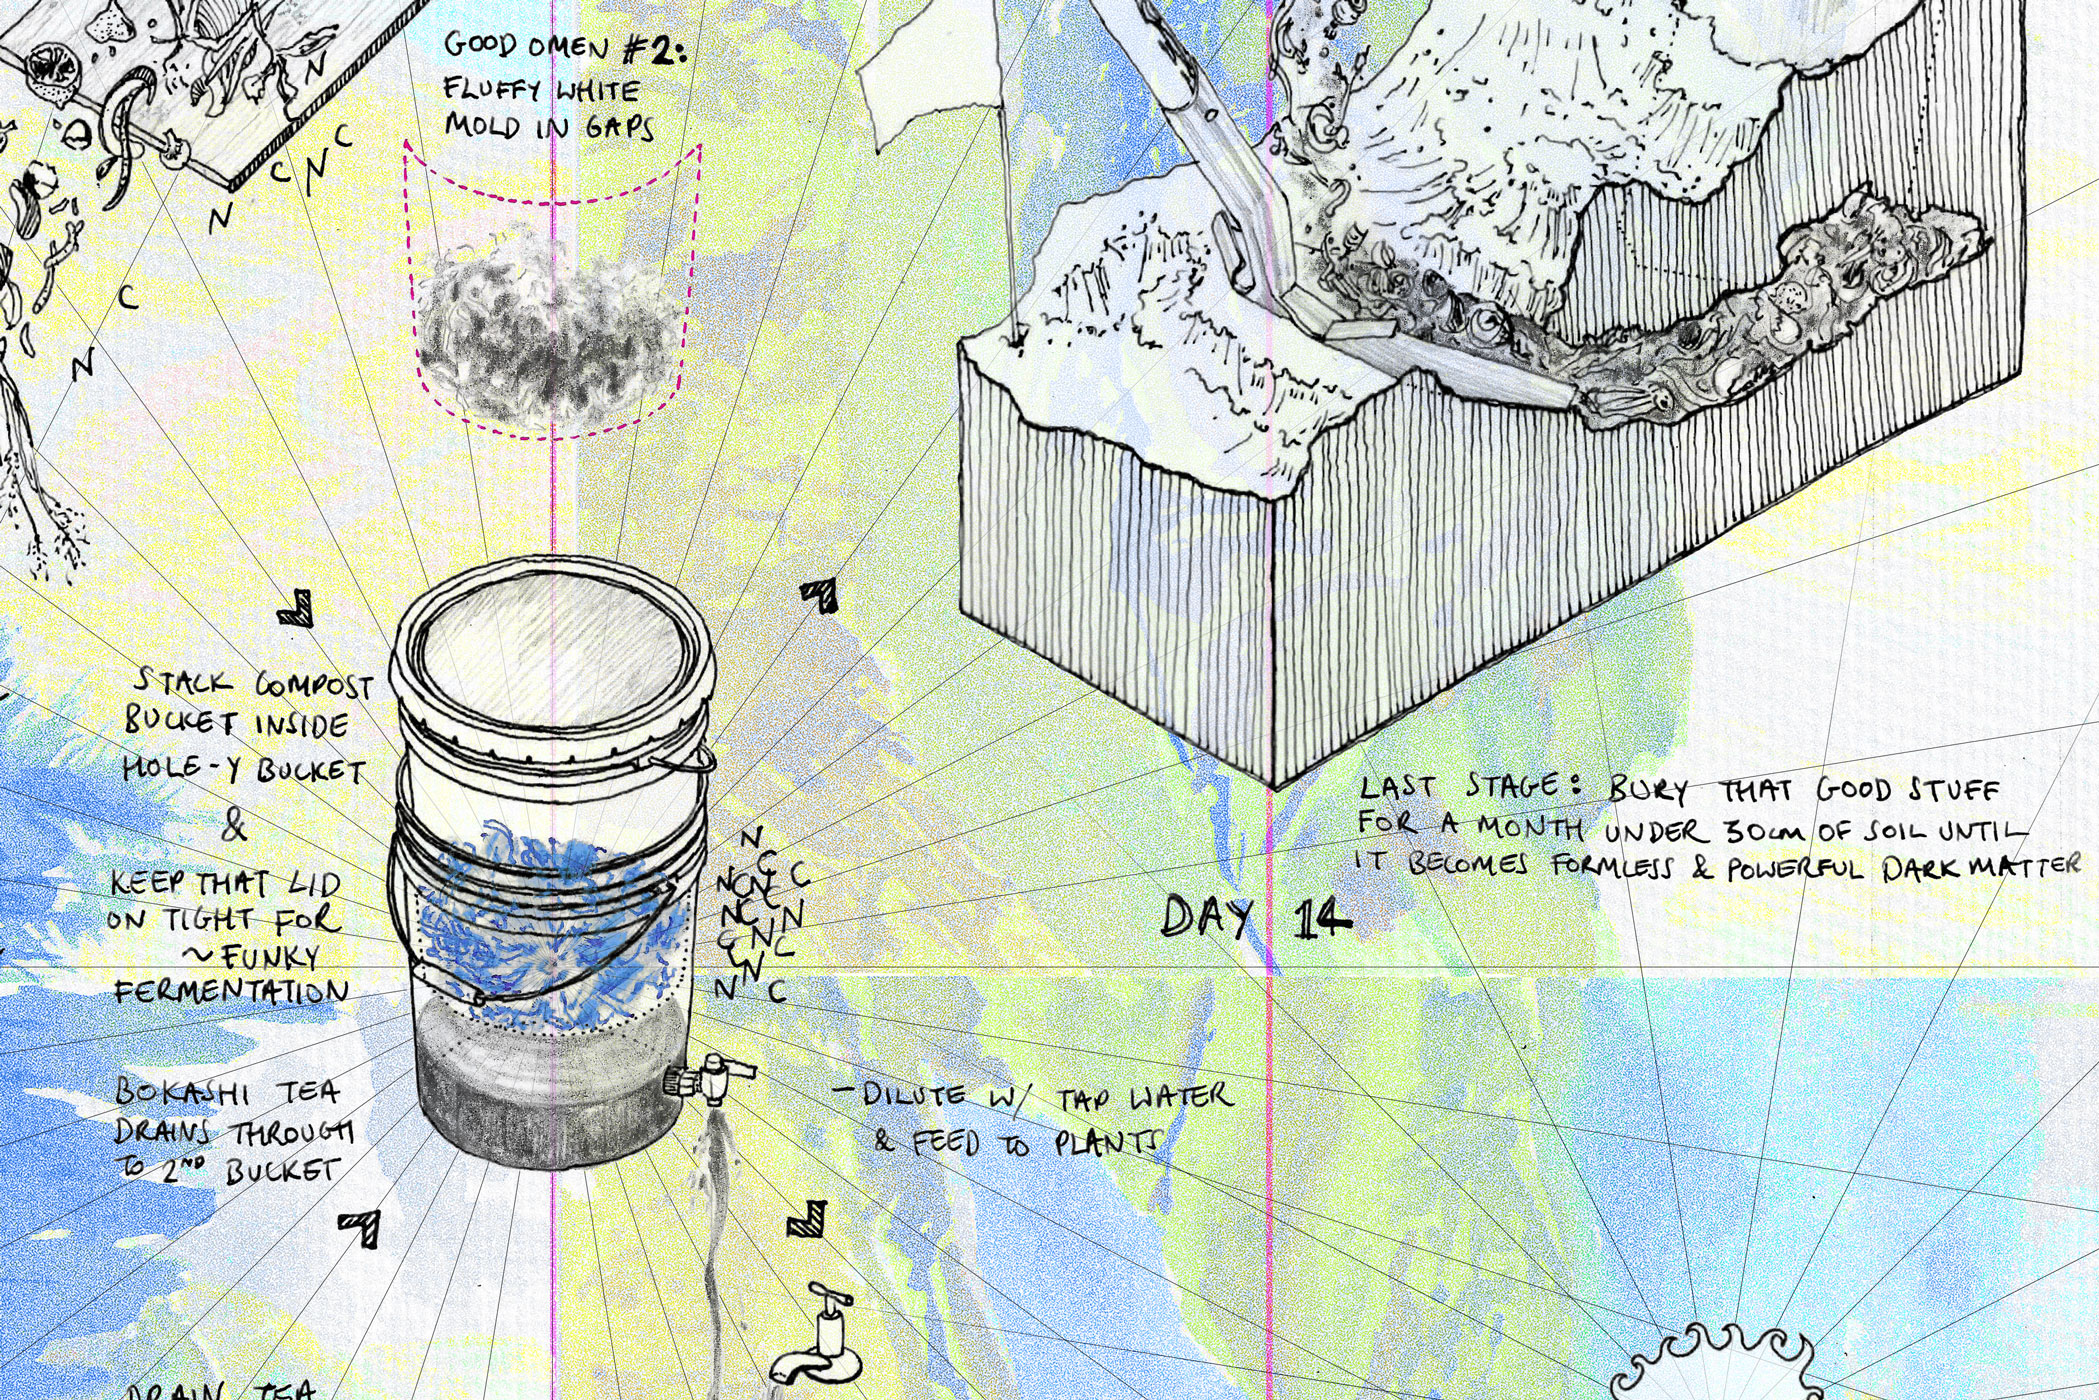 GOOD OMEN #2:
FLUFFY WHITE
MOLD IN GAPS
N
C
N
C
N
C
N
STACK COMPOST
BUCKET INSIDE
HOLE-Y BUCKET
&
KEEP THAT LID
ON TIGHT FOR
~FUNKY
FERMENTATION
N
C
NCNC C
NC N
C N C
N
N C
BOKASHI TEA
DRAINS THROUGH
TO 2ND BUCKET
-DILUTE W/ TAP WATER
& FEED TO PLANTS
LAST STAGE: BURY THAT GOOD STUFF
FOR A MONTH UNDER 30CM OF SOIL UNTIL
IT BECOMES FORMLESS & POWERFUL DARK MATTER
DAY 14
DRAIN TEA